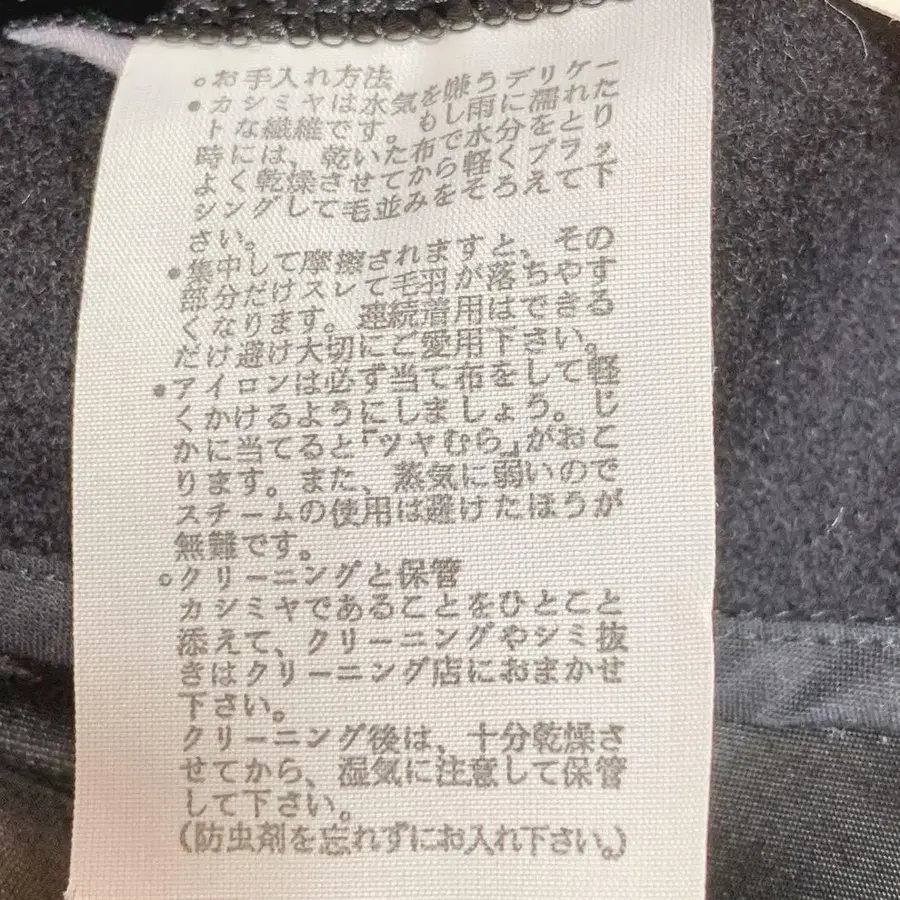 ○お手入れ方法
●カシミヤは水気を嫌うデリケー
トな繊維です。もし雨に濡れた
時には、乾いた布で水分をとり
よく乾燥させてから軽くブラッ
シングして毛並みをそろえて下
さい。
●集中して摩擦されますと、その
部分だけスレて毛羽が落ちやす
くなります。連続着用はできる
だけ避け大切にご愛用下さい。
●アイロンは必ず当て布をして軽
くかけるようにしましょう。じ
かに当てると「ツヤむら」がおこ
ります。また、蒸気に弱いので
スチームの使用は避けたほうが
無難です。
○クリーニングと保管
カシミヤであることをひとこと
添えて、クリーニングやシミ抜
きはクリーニング店におまかせ
下さい。
クリーニング後は、十分乾燥さ
せてから、湿気に注意して保管
して下さい。
(防虫剤を忘れずにお入れ下さい。)